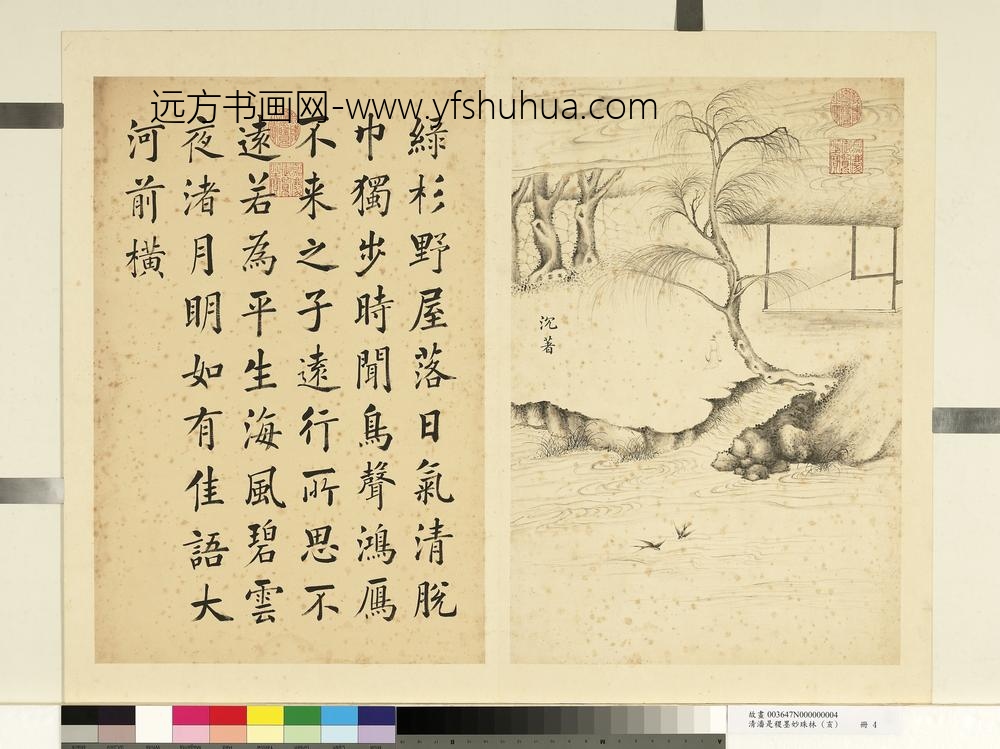 远方书画网-www.yfshuhua.com
綠杉野屋落日氣清脫
巾獨步時聞鳥聲鴻鴈
不来之子遠行所思不
遠若為平生海風碧雲
夜渚月明如有佳語大
河前橫
沉著
故畫 003647N000000004
清潘是稷墨妙珠林（亥） 冊 4